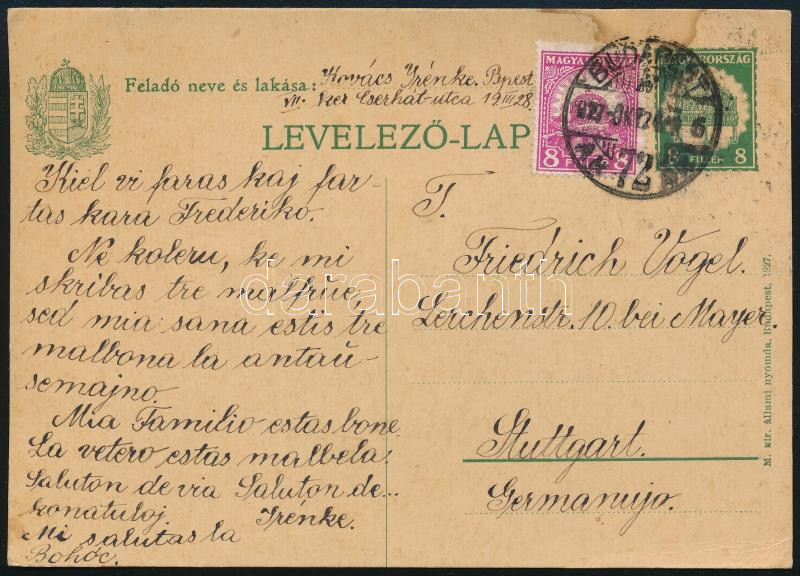 Feladó neve és lakása: Kovács Irénke. Bpest
VII. ker Cserhát-utca 19 III 28.
LEVELEZŐ-LAP
MAGYAR
8 8
MAGYARORSZÁG
FILLÉR 8
BUDAPEST
72
Kiel vi faras kaj far-
tas kara Frederiko.
Ne koleru, ke mi
skribas tre malfrue,
sed mia sana estis tre
malbona la antaŭ-
semajno.
Mia Familio estas bone.
La vetero estas malbela.
Saluton de via Saluton de...
konatuloj Irénke.
Mi salutas la
T.
Friedrich Vogel.
Lerchenstr. 10. bei Mayer.
Stuttgart.
Germanujo.
M. kir. állami nyomda. Budapest, 1927.
darabanth